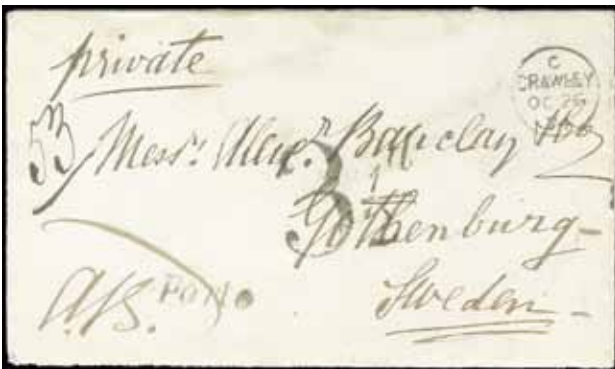 private
C
CRAWLEY
OC 26
53
Messrs Alexr Barclay &
3
Gothenburg
Sweden
A/S.